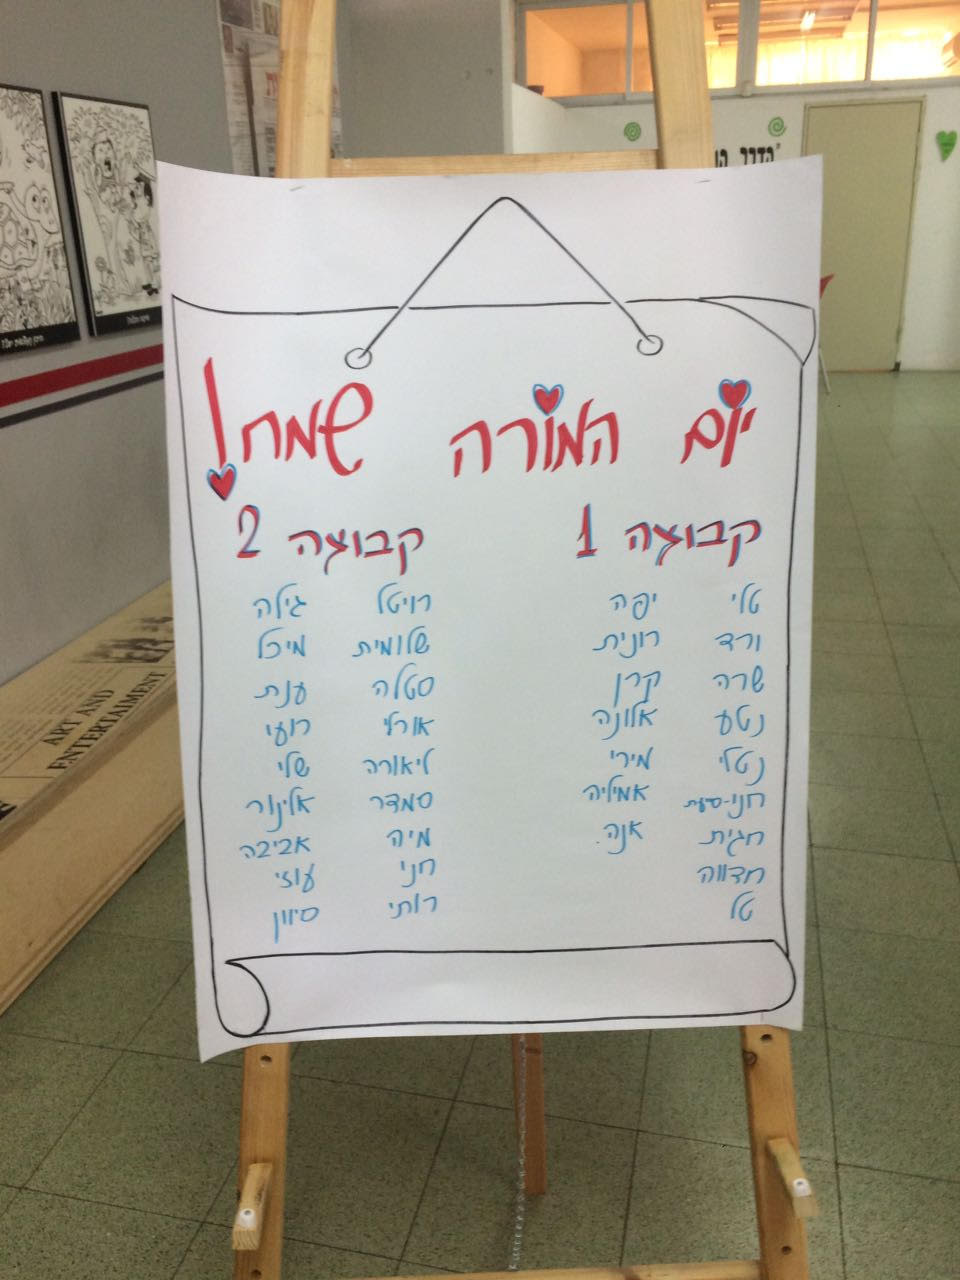 יום המורה שמח!
קבוצה 1
טלי יפה
ורד רונית
שרה קרן
נטע אלונה
נטלי מירי
חני-סייעת אמיליה
חגית אנה.
חדווה
טל
קבוצה 2
רויטל גילה
שלומית מיכל
סטלה ענת
אורלי רועי
ליאורה שלי
סמדר אלינור
מיה אביבה
חני עוזי
רותי סיוון
ART AND
ENTERTAIMENT